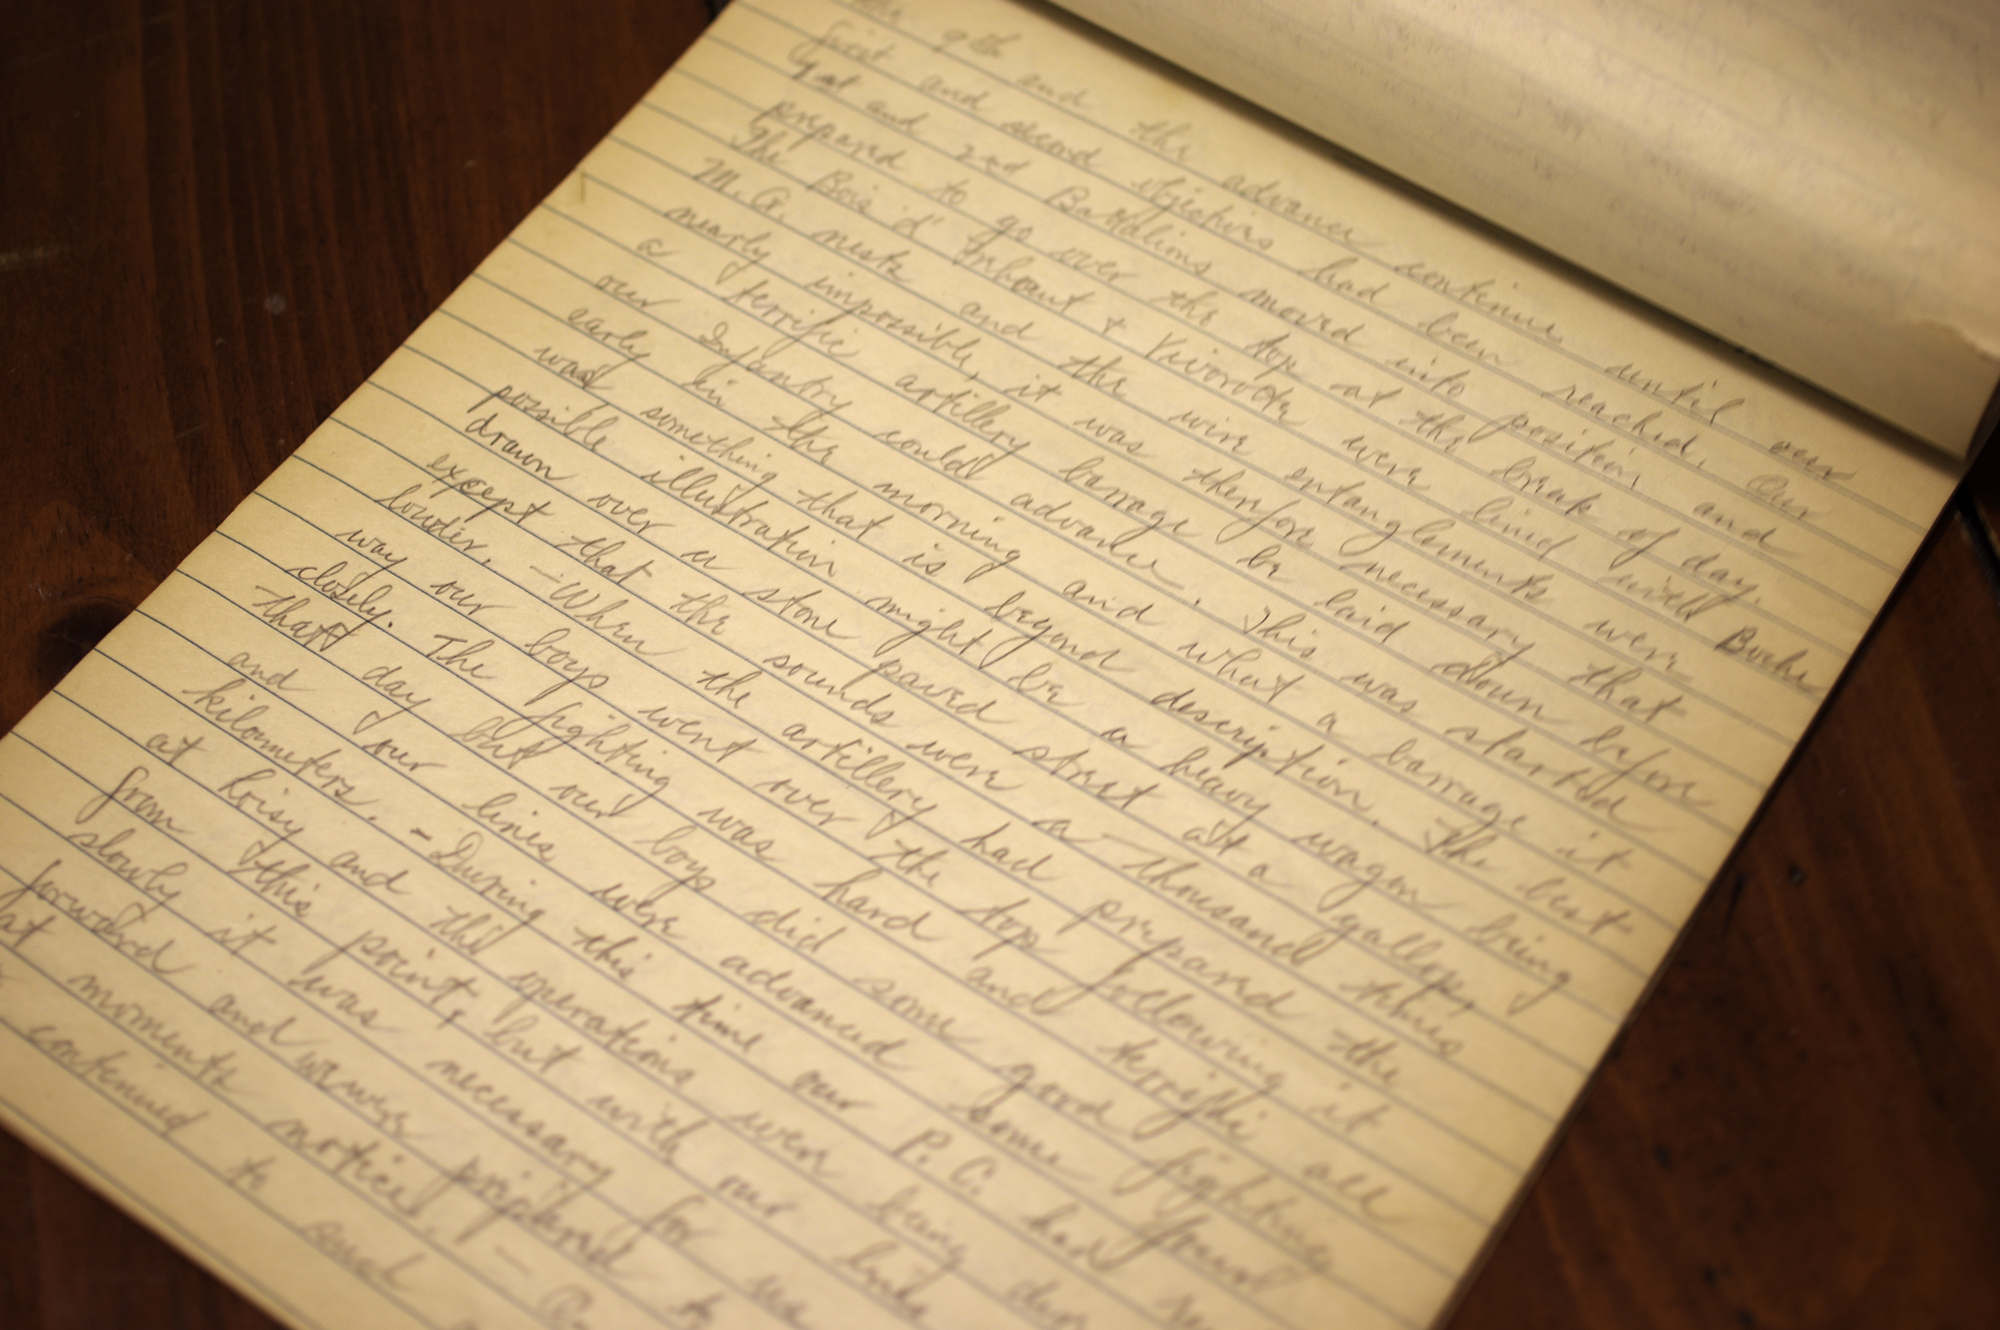 the 9th and the advance continue until our
first and second objectives had been reached. Our
1st and 2nd Battalions moved into position and
prepared to go over the top at the break of day.
The Bois 'd' Ormont & were lined with Boche
M.G. nests and the wire entanglements were
nearly impossible, it was therefore necessary that
a terrific artillery barrage be laid down before
our Infantry could advance. This was started
early in the morning and what a barrage it
was something that is beyond description. The best
possible illustration might be a heavy wagon being
drawn over a stone paved street at a gallop,
except that the sounds were a thousand times
louder. – When the artillery had prepared the
way our boys went over the top following it
closely. The fighting was hard and terrific all
that day but our boys did some good fighting
and our lines were advanced some four
kilometers. – During this time our P.C. had
at and the operations were being
from this point, but with our lines
slowly it was necessary for us
forward and prepared to
at moments notice. –
continued to send